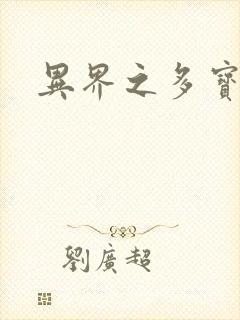 異界之多寶
劉廣超